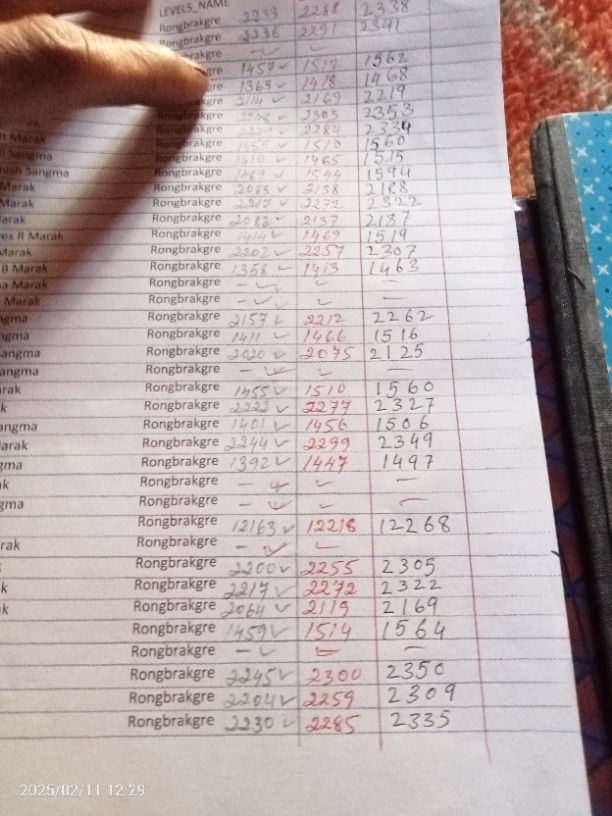 LEVELS_NAME
Rongbrakgre 2233 2288 2338
Rongbrakgre 2236 2291 2341
- ✓ ✓
gre 1457 ✓ 1512 1562
gre 1363 ✓ 1418 1468
akgre 2114 ✓ 2169 2219
Rongbrakgre 2303 2353
Rongbrakgre 2284 2334
Marak Rongbrakgre 1455 ✓ 1510 1560
Sangma Rongbrakgre 1410 ✓ 1465 1515
nish Sangma Rongbrakgre 1489 ✓ 1544 1594
Marak Rongbrakgre 2083 ✓ 2138 2188
Marak Rongbrakgre 2217 ✓ 2272 2322
arak Rongbrakgre 2082 ✓ 2137 2187
es R Marak Rongbrakgre 1414 ✓ 1469 1519
Marak Rongbrakgre 2202 ✓ 2257 2307
B Marak Rongbrakgre 1358 ✓ 1413 1463
a Marak Rongbrakgre - ✓ ✓ -
Marak Rongbrakgre - ✓ ✓ -
ngma Rongbrakgre 2157 ✓ 2212 2262
ngma Rongbrakgre 1411 ✓ 1466 1516
angma Rongbrakgre 2020 ✓ 2075 2125
angma Rongbrakgre - ✓ ✓ -
rak Rongbrakgre 1455 ✓ 1510 1560
k Rongbrakgre 2222 ✓ 2277 2327
angma Rongbrakgre 1401 ✓ 1456 1506
arak Rongbrakgre 2244 ✓ 2299 2349
gma Rongbrakgre 1392 ✓ 1447 1497
k Rongbrakgre - ✓ ✓ -
gma Rongbrakgre - ✓ ✓ -
Rongbrakgre 12163 ✓ 12218 12268
rak Rongbrakgre - ✓ ✓
Rongbrakgre 2200 ✓ 2255 2305
k Rongbrakgre 2217 ✓ 2272 2322
k Rongbrakgre 2064 ✓ 2119 2169
Rongbrakgre 1459 ✓ 1514 1564
Rongbrakgre - ✓ ✓ -
Rongbrakgre 2245 ✓ 2300 2350
Rongbrakgre 2204 ✓ 2259 2309
Rongbrakgre 2230 ✓ 2285 2335
2025/02/11 12:29